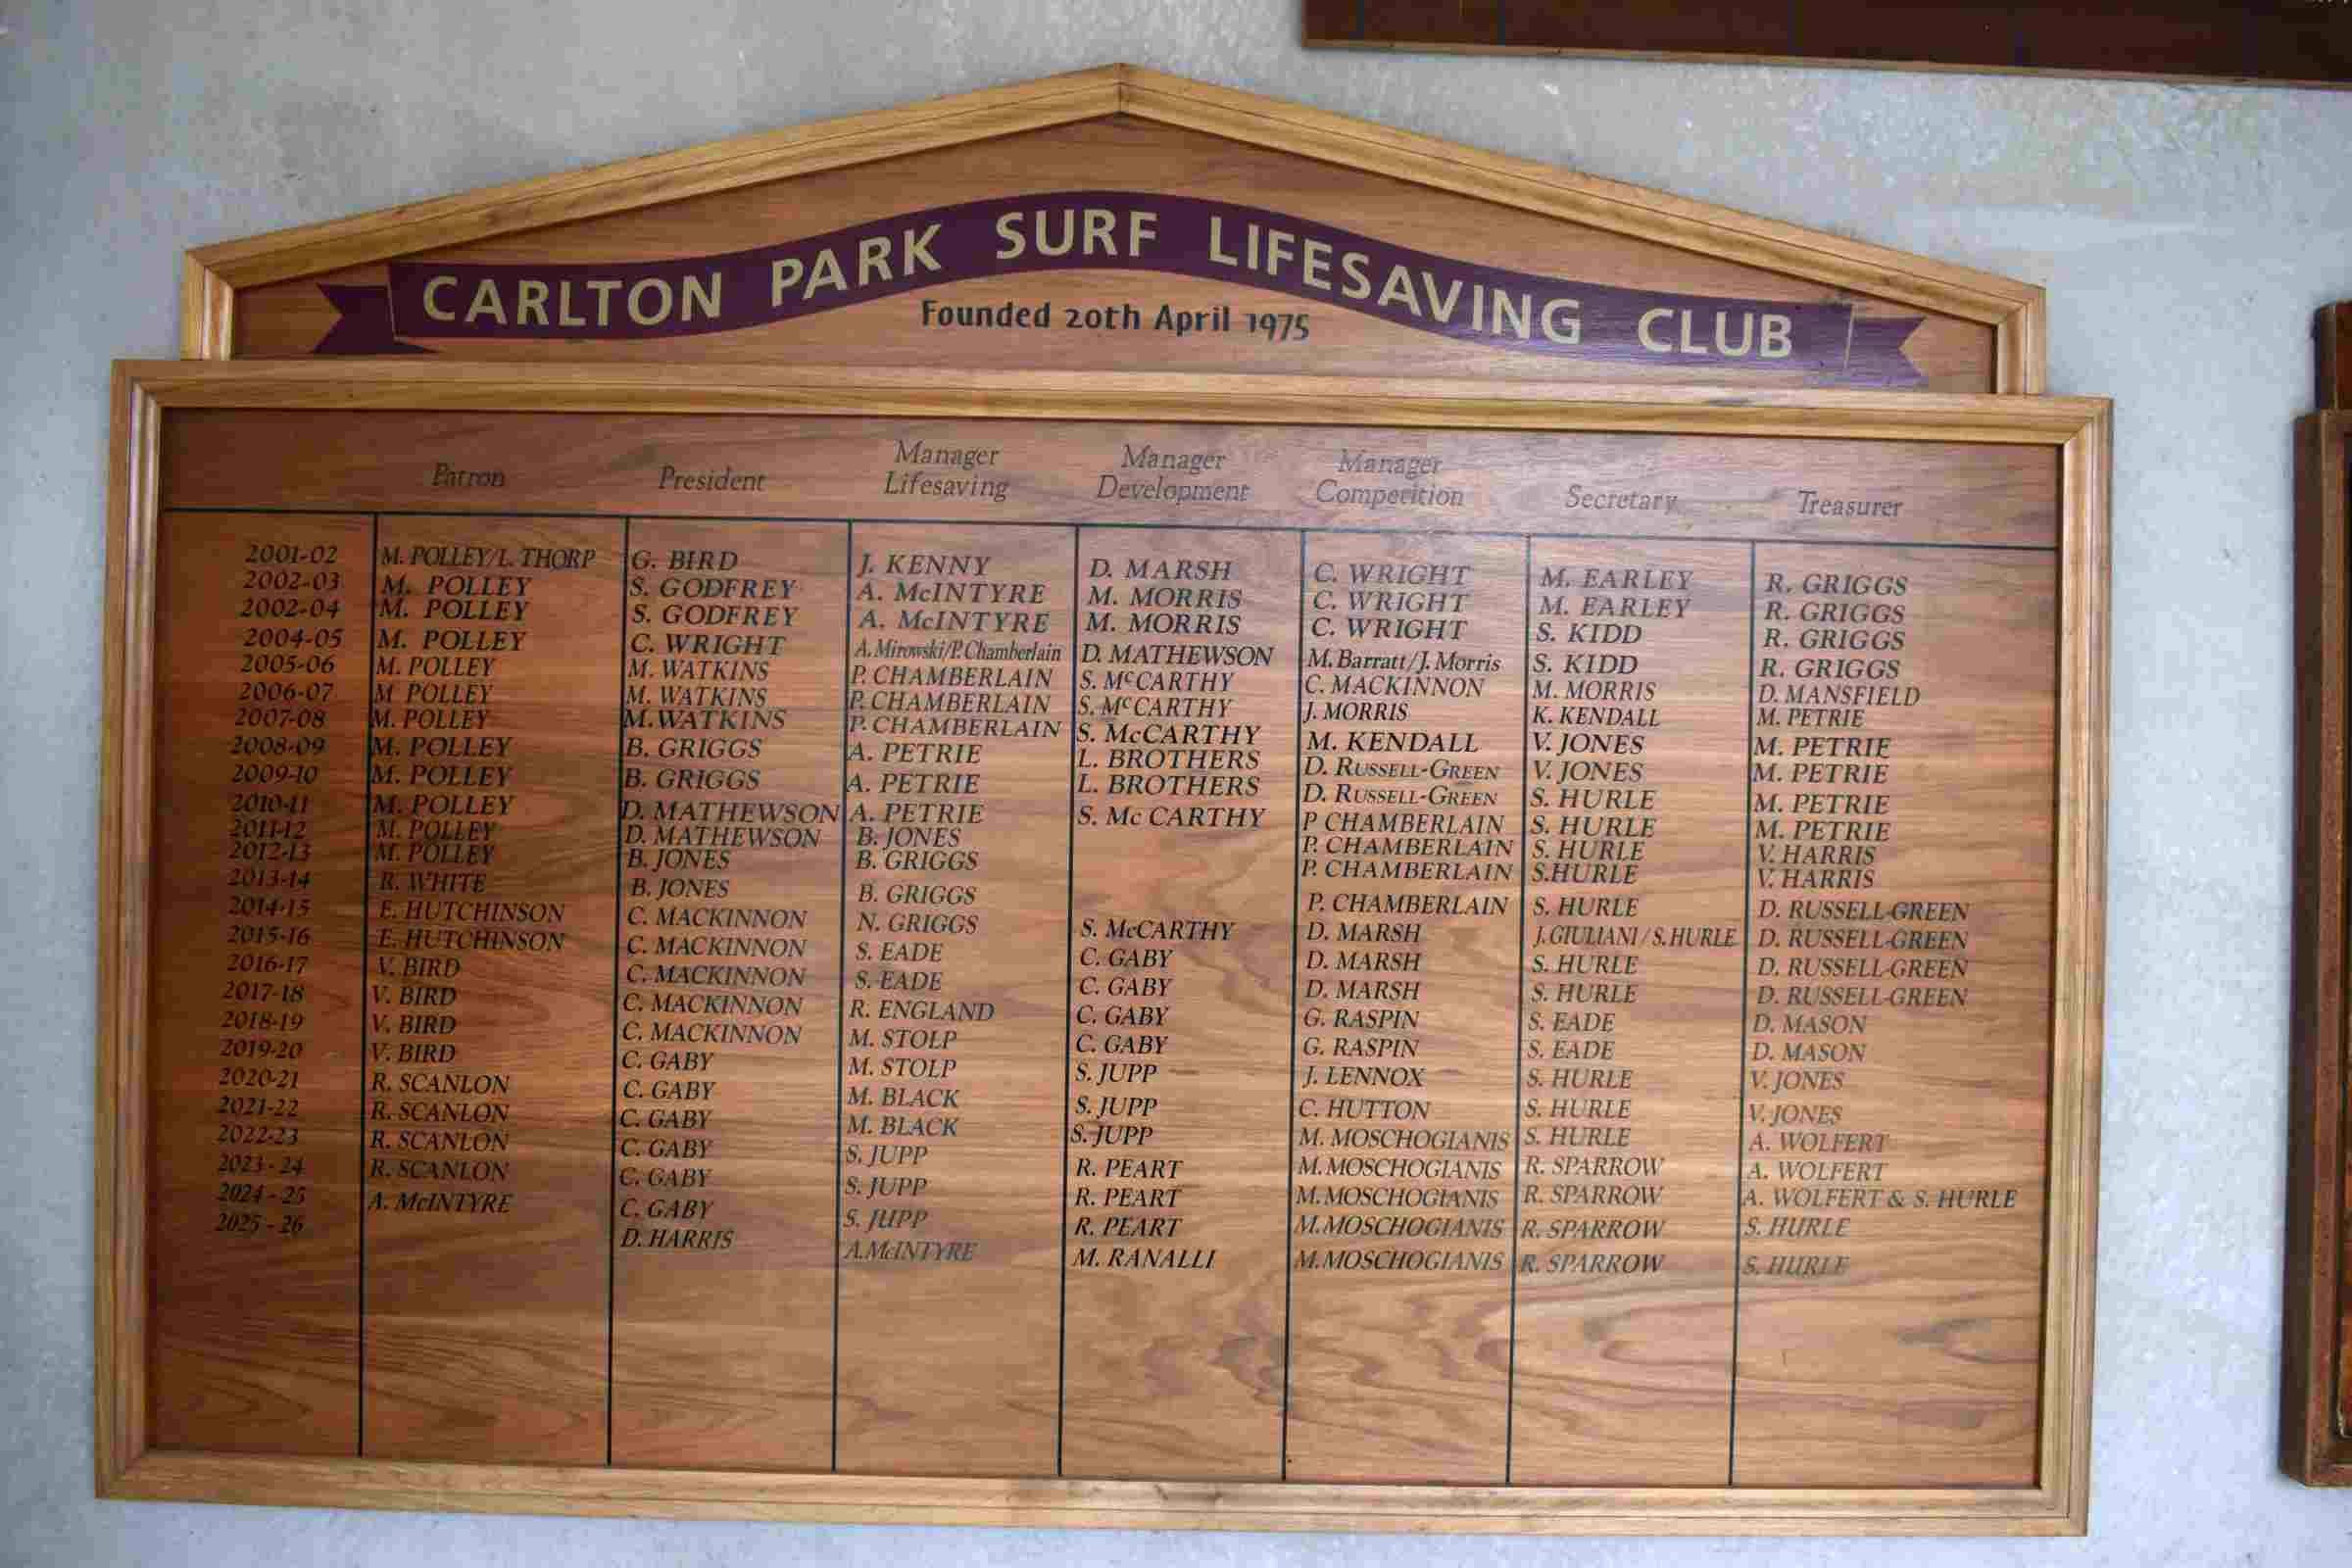 CARLTON PARK SURF LIFESAVING CLUB
Founded 20th April 1975
Patron President Manager Lifesaving Manager Development Manager Competition Secretary Treasurer
2001-02 M. POLLEY/L. THORP G. BIRD J. KENNY D. MARSH C. WRIGHT M. EARLEY R. GRIGGS
2002-03 M. POLLEY S. GODFREY A. McINTYRE M. MORRIS C. WRIGHT M. EARLEY R. GRIGGS
2002-04 M. POLLEY S. GODFREY A. McINTYRE M. MORRIS C. WRIGHT S. KIDD R. GRIGGS
2004-05 M. POLLEY C. WRIGHT A. Mirowski/P. Chamberlain D. MATHEWSON M. Barratt/J. Morris S. KIDD R. GRIGGS
2005-06 M. POLLEY M. WATKINS P. CHAMBERLAIN S. McCARTHY C. MACKINNON M. MORRIS D. MANSFIELD
2006-07 M POLLEY M. WATKINS P. CHAMBERLAIN S. McCARTHY J. MORRIS K. KENDALL M. PETRIE
2007-08 M. POLLEY M. WATKINS P. CHAMBERLAIN S. McCARTHY M. KENDALL V. JONES M. PETRIE
2008-09 M. POLLEY B. GRIGGS A. PETRIE L. BROTHERS D. RUSSELL-GREEN V. JONES M. PETRIE
2009-10 M. POLLEY B. GRIGGS A. PETRIE L. BROTHERS D. RUSSELL-GREEN S. HURLE M. PETRIE
2010-11 M. POLLEY D. MATHEWSON A. PETRIE S. Mc CARTHY P CHAMBERLAIN S. HURLE M. PETRIE
2011-12 M. POLLEY D. MATHEWSON B. JONES P. CHAMBERLAIN S. HURLE V. HARRIS
2012-13 M. POLLEY B. JONES B. GRIGGS P. CHAMBERLAIN S.HURLE V. HARRIS
2013-14 R. WHITE B. JONES B. GRIGGS P. CHAMBERLAIN S. HURLE D. RUSSELL-GREEN
2014-15 E. HUTCHINSON C. MACKINNON N. GRIGGS S. McCARTHY D. MARSH J. GIULIANI / S. HURLE D. RUSSELL-GREEN
2015-16 E. HUTCHINSON C. MACKINNON S. EADE C. GABY D. MARSH S. HURLE D. RUSSELL-GREEN
2016-17 V. BIRD C. MACKINNON S. EADE C. GABY D. MARSH S. HURLE D. RUSSELL-GREEN
2017-18 V. BIRD C. MACKINNON R. ENGLAND C. GABY G. RASPIN S. EADE D. MASON
2018-19 V. BIRD C. MACKINNON M. STOLP C. GABY G. RASPIN S. EADE D. MASON
2019-20 V. BIRD C. GABY M. STOLP S. JUPP J. LENNOX S. HURLE V. JONES
2020-21 R. SCANLON C. GABY M. BLACK S. JUPP C. HUTTON S. HURLE V. JONES
2021-22 R. SCANLON C. GABY M. BLACK S. JUPP M. MOSCHOGIANIS S. HURLE A. WOLFERT
2022-23 R. SCANLON C. GABY S. JUPP R. PEART M. MOSCHOGIANIS R. SPARROW A. WOLFERT
2023-24 R. SCANLON C. GABY S. JUPP R. PEART M. MOSCHOGIANIS R. SPARROW A. WOLFERT & S. HURLE
2024-25 A. McINTYRE C. GABY S. JUPP R. PEART M. MOSCHOGIANIS R. SPARROW S. HURLE
2025-26 D. HARRIS A. McINTYRE M. RANALLI M. MOSCHOGIANIS R. SPARROW S. HURLE